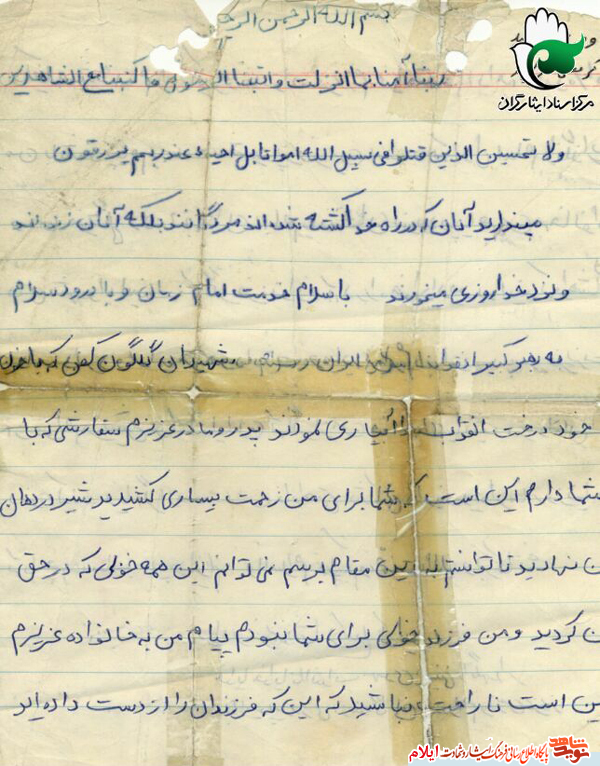 بسم الله الرحمن الرحیم
ربنا آمنا بما انزلت واتبعنا الرسول فاکتبنا مع الشاهدین
ولا تحسبن الذین قتلوا فی سبیل الله امواتا بل احیاء عند ربهم یرزقون
مپندارید آنان که در راه خدا کشته شده اند مردگانند بلکه آنان زنده اند
و نزد خدا روزی میخورند با سلام خدمت امام زمان و با درود سلام
به رهبر کبیر انقلاب ایران شهیدان گلگون کفن که با خون
خود درخت انقلاب را آبیاری نمودند پدر و مادر عزیزم سفارشی که با
شما دارم این است که شما برای من زحمت بسیاری کشیدید شیر در دهان
من نهادید تا توانستم به این مقام برسم نمی توانم این همه خوبی که در حق
من کردید و من فرزند خوبی برای شما نبودم پیام من به خانواده عزیزم
این است ناراحت نباشید که این که فرزندان را از دست داده اید
مرکز اسناد ایثارگران
نوید شاهد
پایگاه اطلاع رسانی فرهنگ ایثار و شهادت ایلام